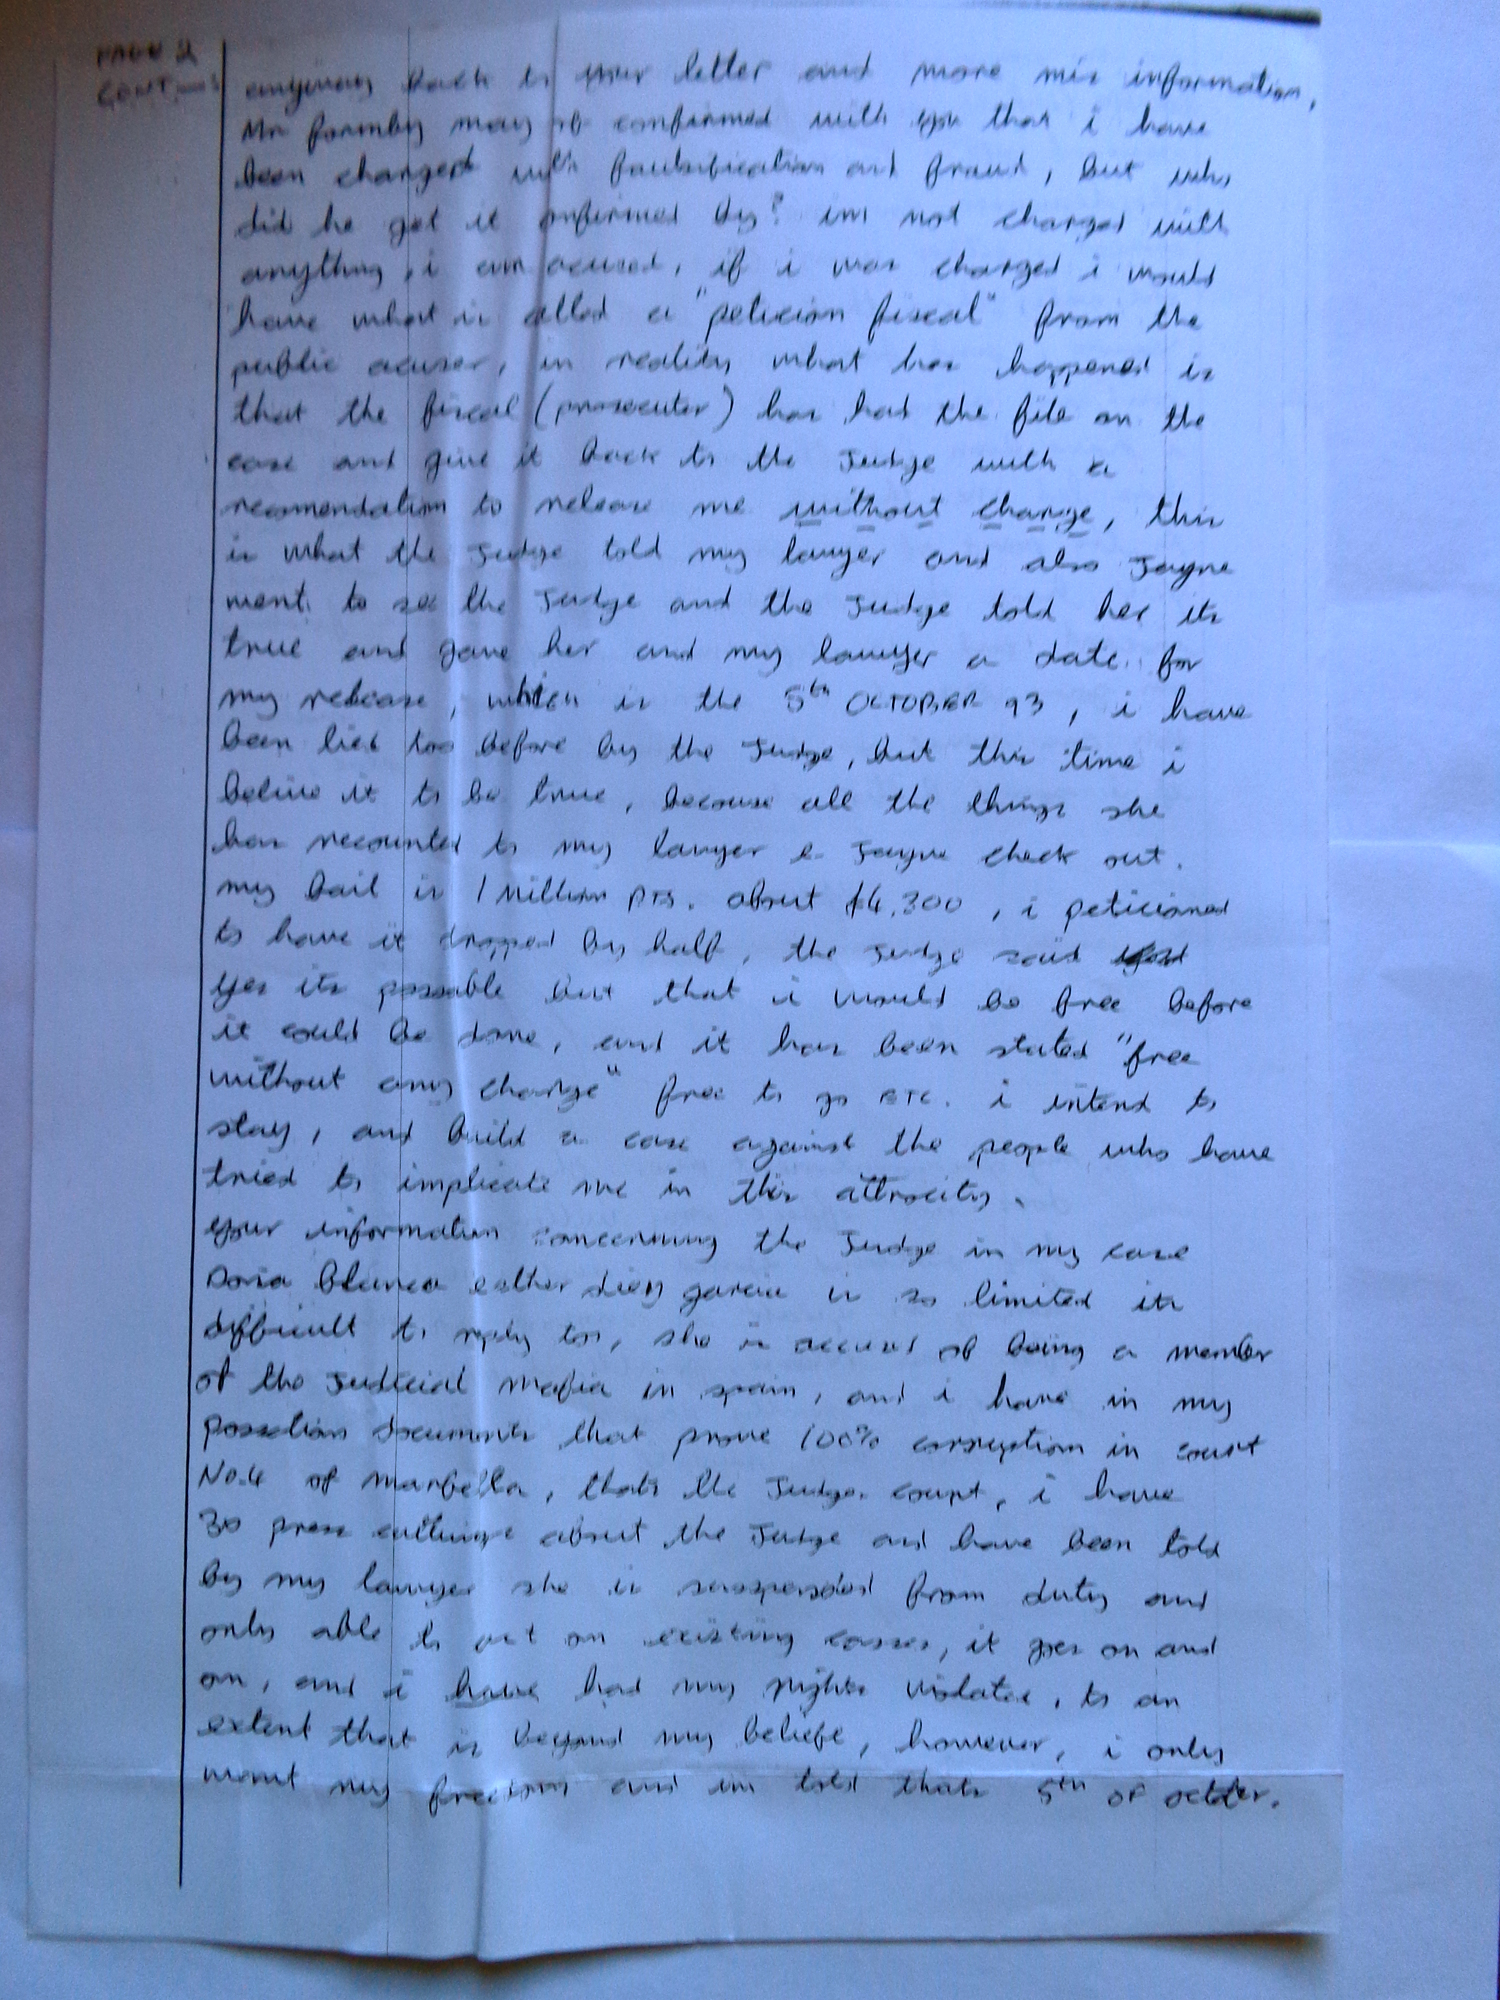 PAGE 2
CONT
anyway back to your letter and more mis information,
Mr formby may of confirmed with you that i have
been charged with faulsification and fraud, but who
did he get it confirmed by? im not charged with
anything, i am acused, if i was charged i would
have what is called a "peticion fiscal" from the
public acuser, in reality what has happened is
that the fiscal (prosecuter) has had the file on the
case and give it back to the Judge with a
recomendation to release me without charge, this
is what the Judge told my lawyer and also Jayne
went to see the Judge and the Judge told her its
true and gave her and my lawyer a date for
my release, which is the 5th OCTOBER 93, i have
been lied too before by the Judge, but this time i
belive it to be true, because all the things she
has recounted to my lawyer & Jayne check out.
my bail is 1 Million PTS. about £4,300, i peticioned
to have it dropped by half, the Judge said
yes its possable but that i would be free before
it could be done, and it has been stated "free
without any charge" free to go ETC. i intend to
stay, and build a case against the people who have
tried to implicate me in this attrocity.
your information concerning the Judge in my case
Blanca esther diez garcia is so limited its
difficult to reply too, she is accused of being a member
of the Judicial mafia in spain, and i have in my
possetion documents that prove 100% corruption in court
No.4 of marbella, thats the Judges court, i have
30 press cuttings about the Judge and have been told
by my lawyer she is suspended from duty and
only able to act on existing casses, it goes on and
on, and i have had my rights violated, to an
extent that is beyond my beliefe, however, i only
want my freedom and im told thats 5th of october.